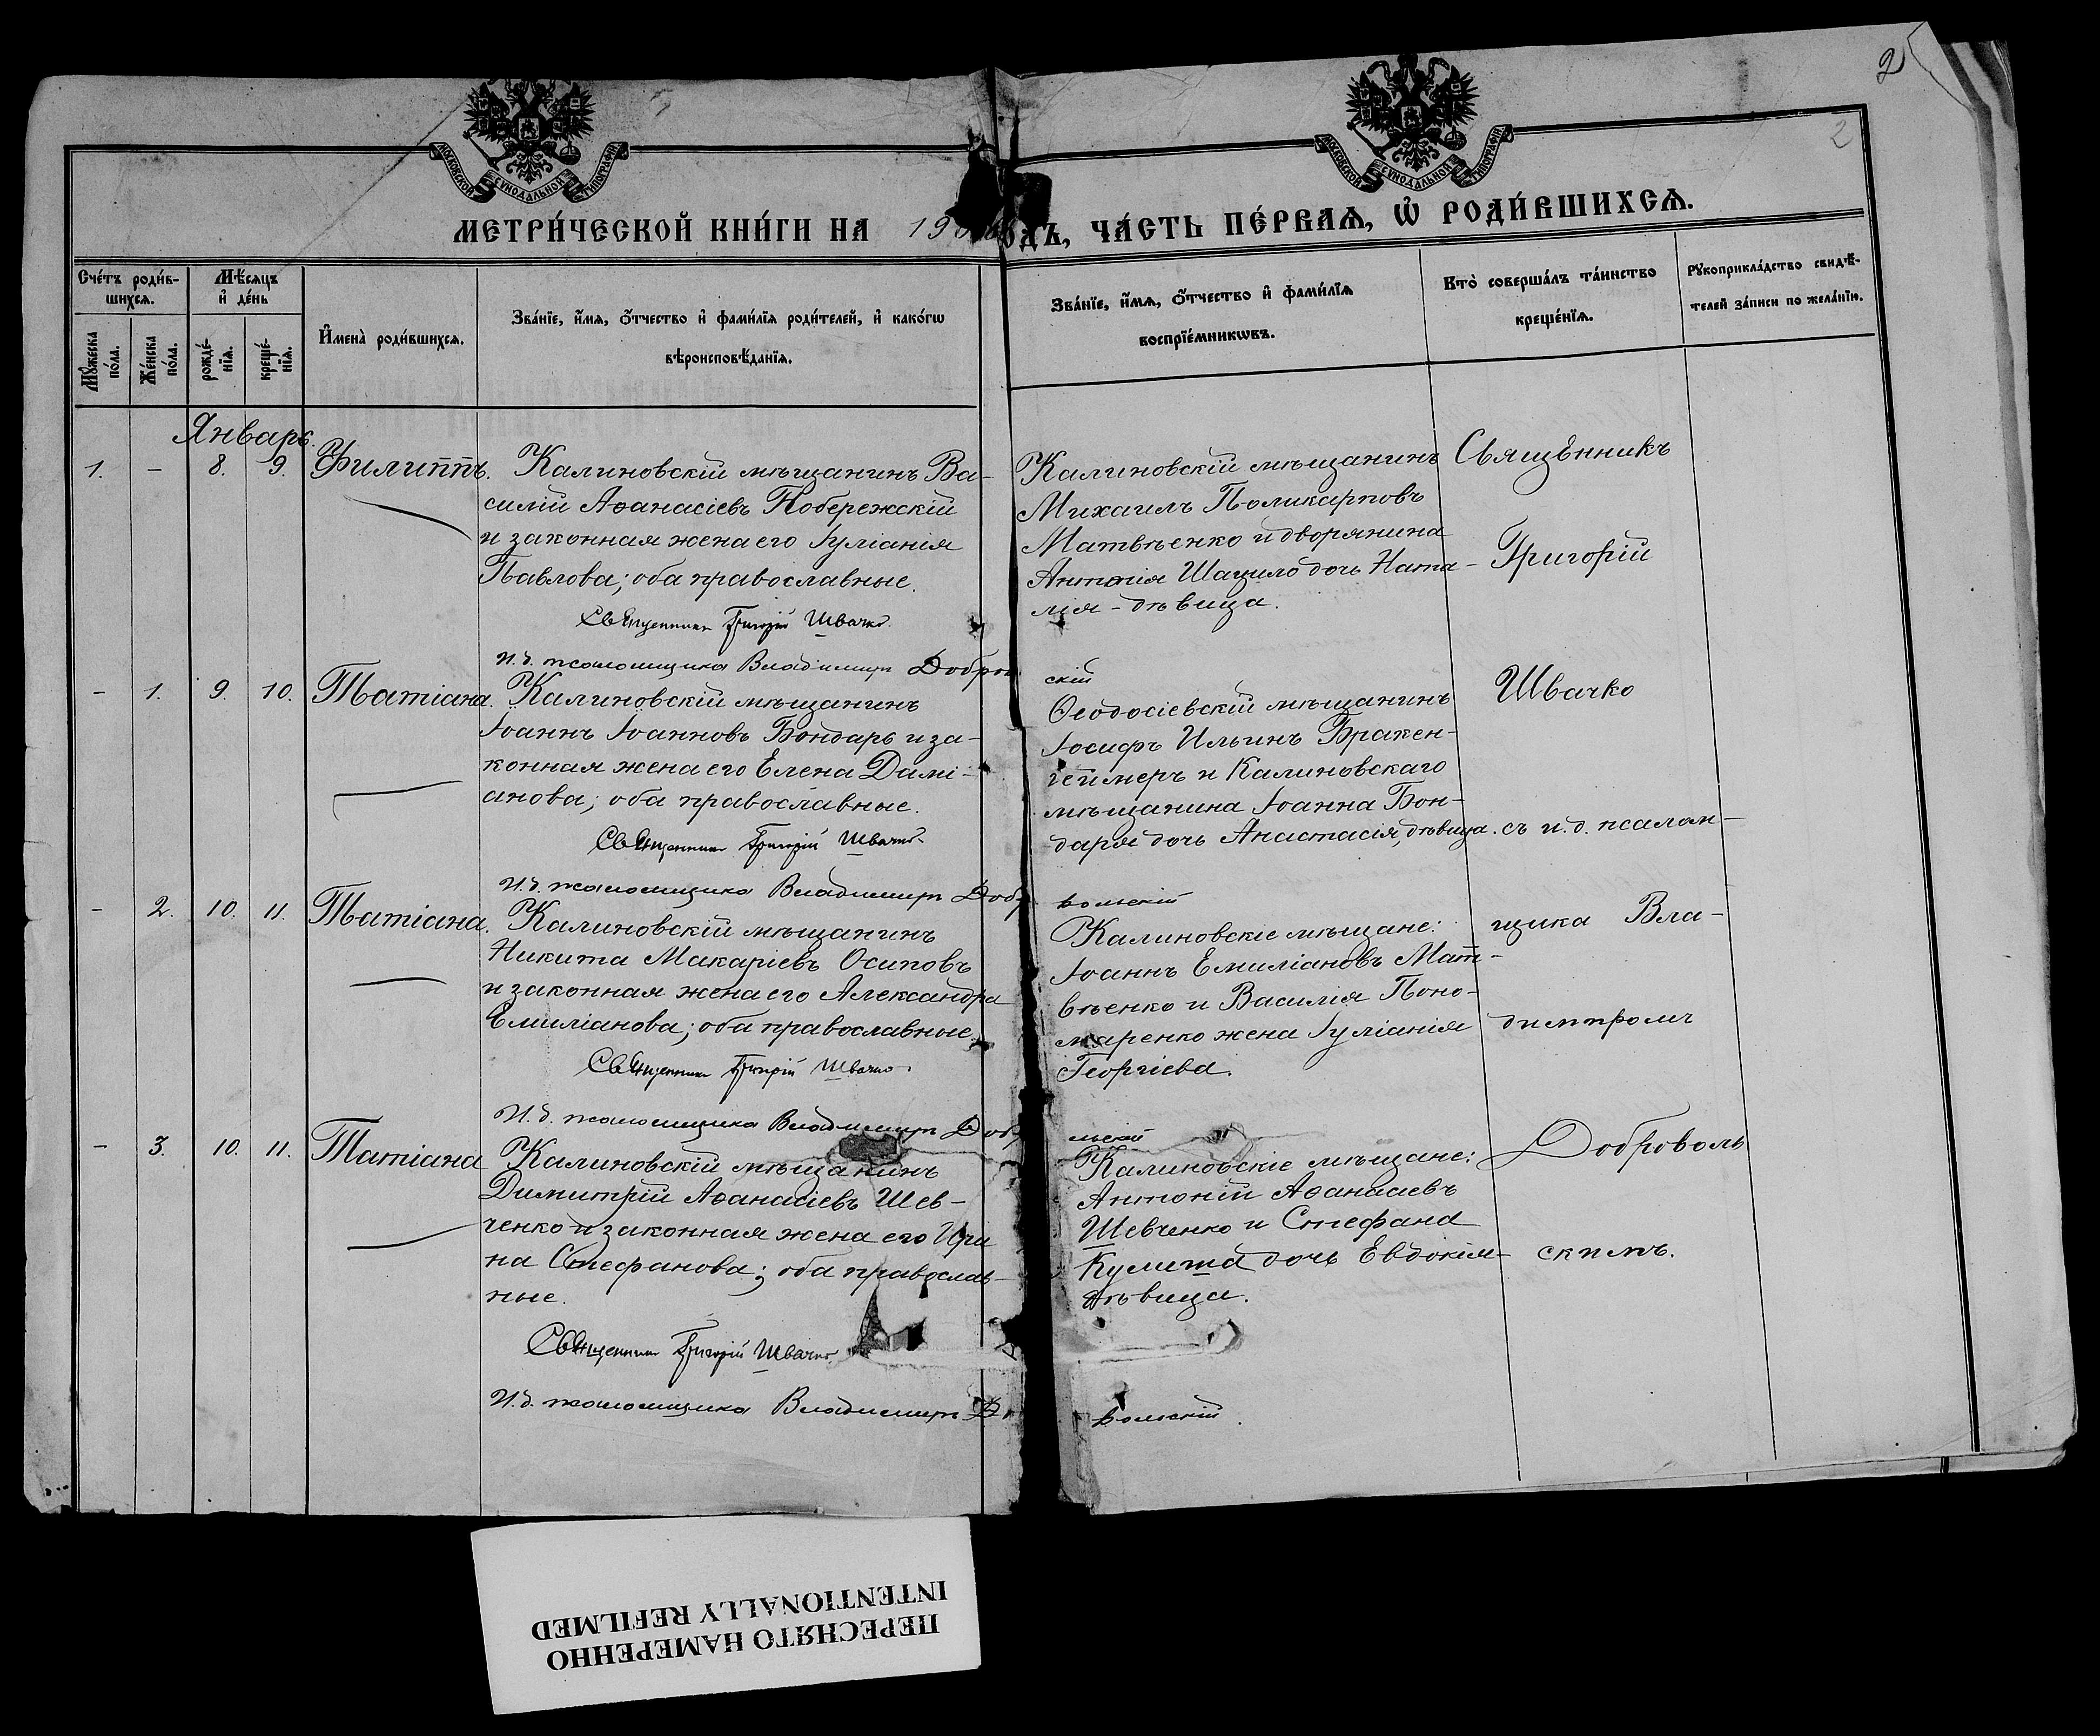 2
2
МОСКОВСКОЙ СѴНОДАЛЬНОЙ ТИПОГРАФІИ
МОСКОВСКОЙ СѴНОДАЛЬНОЙ ТИПОГРАФІИ
МЕТРИ́ЧЕСКОЙ КНИ́ГИ НА 190
ОДЪ, ЧА́СТЬ ПЕ́РВАѦ, Ѡ҆ РОДИ́ВШИХСѦ.
Сче́тъ роди́в-
шихсѧ.
Мѣ́сѧцъ
и҆ де́нь
Мꙋ́жеска
по́ла.
Же́нска
по́ла.
рожде́-
нїѧ.
креще́-
нїѧ.
И҆мена̀ роди́вшихсѧ.
Зва́нїе, и҆́мѧ, ѻ҆́тчество и҆ фами́лїѧ роди́телей, и҆ како́гѡ
вѣроисповѣ́данїѧ.
Зва́нїе, и҆́мѧ, ѻ҆́тчество и҆ фами́лїѧ
воспрїе́мникѡвъ.
Кто̀ соверша́лъ та́инство
креще́нїѧ.
Рꙋкоприкла́дство свидѣ́-
телей за́писи по жела́нїю.
Январь.
1. - 8. 9. Филиппъ.
Калиновскій мѣщанинъ Ва-
силій Аѳанасіевъ Побережскій
и законная жена его Іуліанія
Павлова; оба православные.
Священникъ Григорій Швачко.
И.д. псаломщика Владимиръ Добров
скій
Калиновскій мѣщанинъ
Михаилъ Поликарповъ
Матвѣенко и дворянина
Антонія Шацило дочь Ната-
лія - дѣвица.
Священникъ
Григорій
Швачко
- 1. 9. 10. Татіана.
Калиновскій мѣщанинъ
Іоаннъ Іоанновъ Бондарь и за-
конная жена его Елена Дамі-
анова; оба православные.
Священникъ Григорій Швачко.
И.д. псаломщика Владимиръ Добр
вольскій
Ѳеодосіевскій мѣщанинъ
Іосифъ Ильинъ Бракен-
геймеръ и Калиновскаго
мѣщанина Іоанна Бон-
даря дочь Анастасія, дѣвица.
съ и.д. псалом-
- 2. 10. 11. Татіана.
Калиновскій мѣщанинъ
Никита Макаріевъ Осиповъ
и законная жена его Александра
Емиліанова; оба православные.
Священникъ Григорій Швачко.
И.д. псаломщика Владимиръ Доб
льскій
Калиновскіе мѣщане:
Іоаннъ Емиліановъ Мат-
вѣенко и Василія Поно-
маренко жена Іуліанія
Георгіева.
щика Вла-
димиромъ
- 3. 10. 11. Татіана
Калиновскій мѣщанинъ
Димитрій Аѳанасіевъ Шев-
ченко и законная жена его Ири
на Стефанова; оба православ-
ные.
Священникъ Григорій Швачко.
И.д. псаломщика Владимиръ До
вольскій.
Калиновскіе мѣщане:
Антоній Аѳанасіевъ
Шевченко и Стефана
Кулиша дочь Евдокія-
дѣвица.
Доброволь
скимъ.
ПЕРЕСНЯТО НАМЕРЕННО
INTENTIONALLY REFILMED